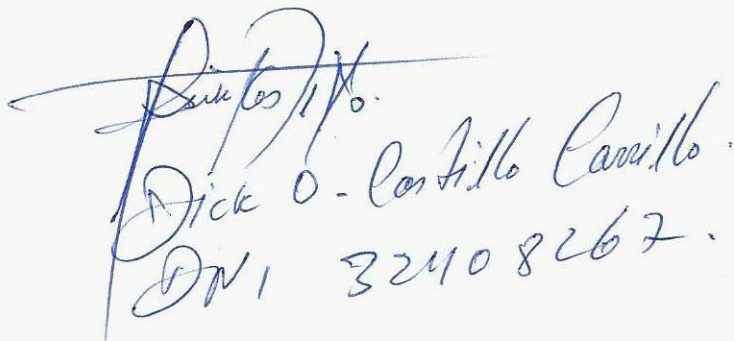 Dick O. Castillo Carrillo.
DNI 32408267.